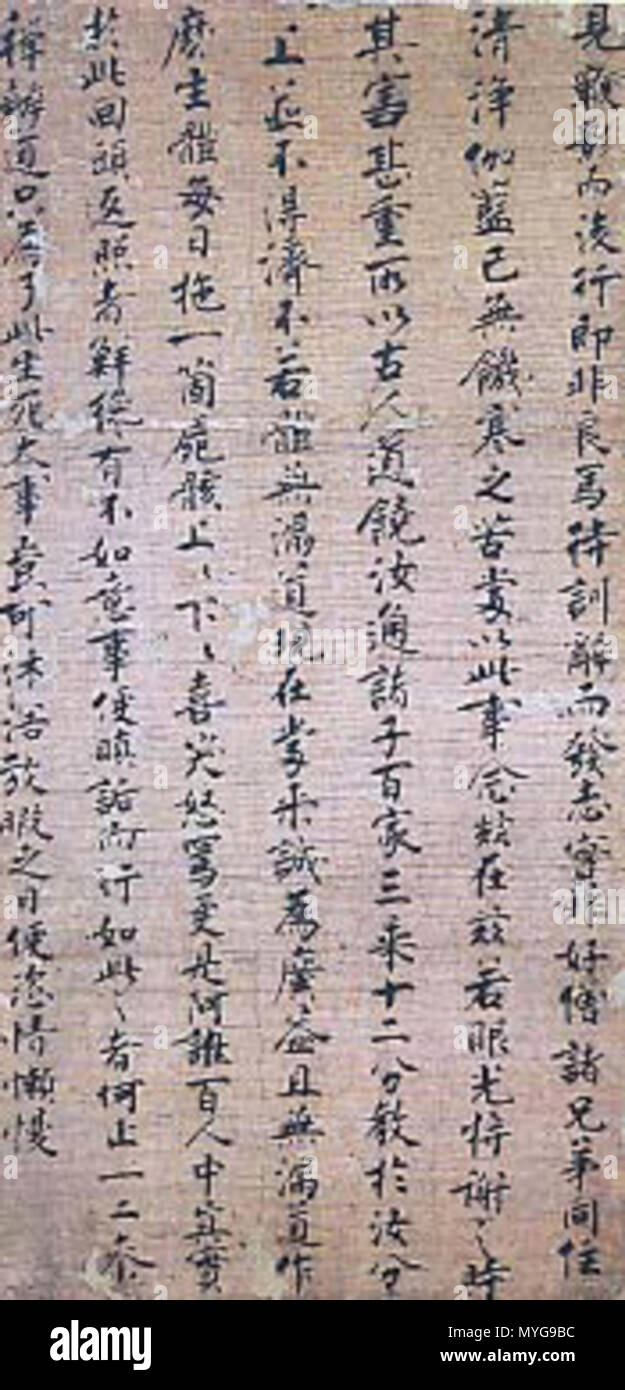 見鞭影而後行即非良馬待訓辭而發志寔非好僧諸兄弟同住
清淨伽藍已無饑寒之苦當以此事念茲在茲若眼光將謝之時
其害甚重所以古人道饒汝通諸子百家三乘十二分教於汝分
上並不得濟不若體無漏道現在當來誠為廣益且無漏道作
麼生體每日拖一箇死骸上〻下〻喜笑怒罵更是阿誰百人中真實
於此回頭返照者鮮縱有不如意事便瞋詬而行如此〻者何止一二參
禪辦道只為了此生死大事豈可沐浴放暇之日便恣情懶慢
alamy
Image ID: MYG9BC
www.alamy.com